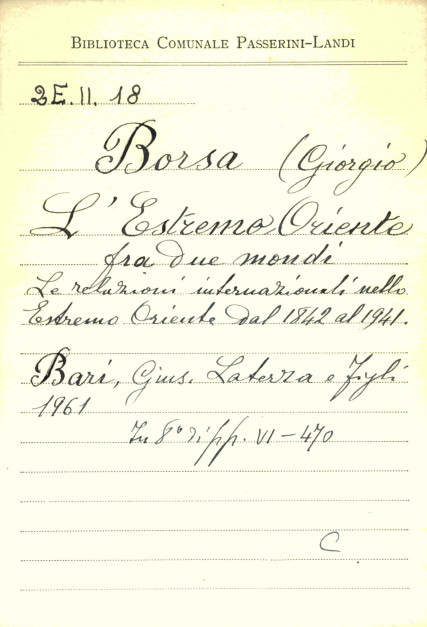 BIBLIOTECA COMUNALE PASSERINI-LANDI
2E.II.18
Borsa (Giorgio)
L'Estremo Oriente
fra due mondi
Le relazioni internazionali nello
Estremo Oriente dal 1842 al 1941.
Bari, Gius. Laterza e Figli
1961
In 8° di pp. VI-470
C